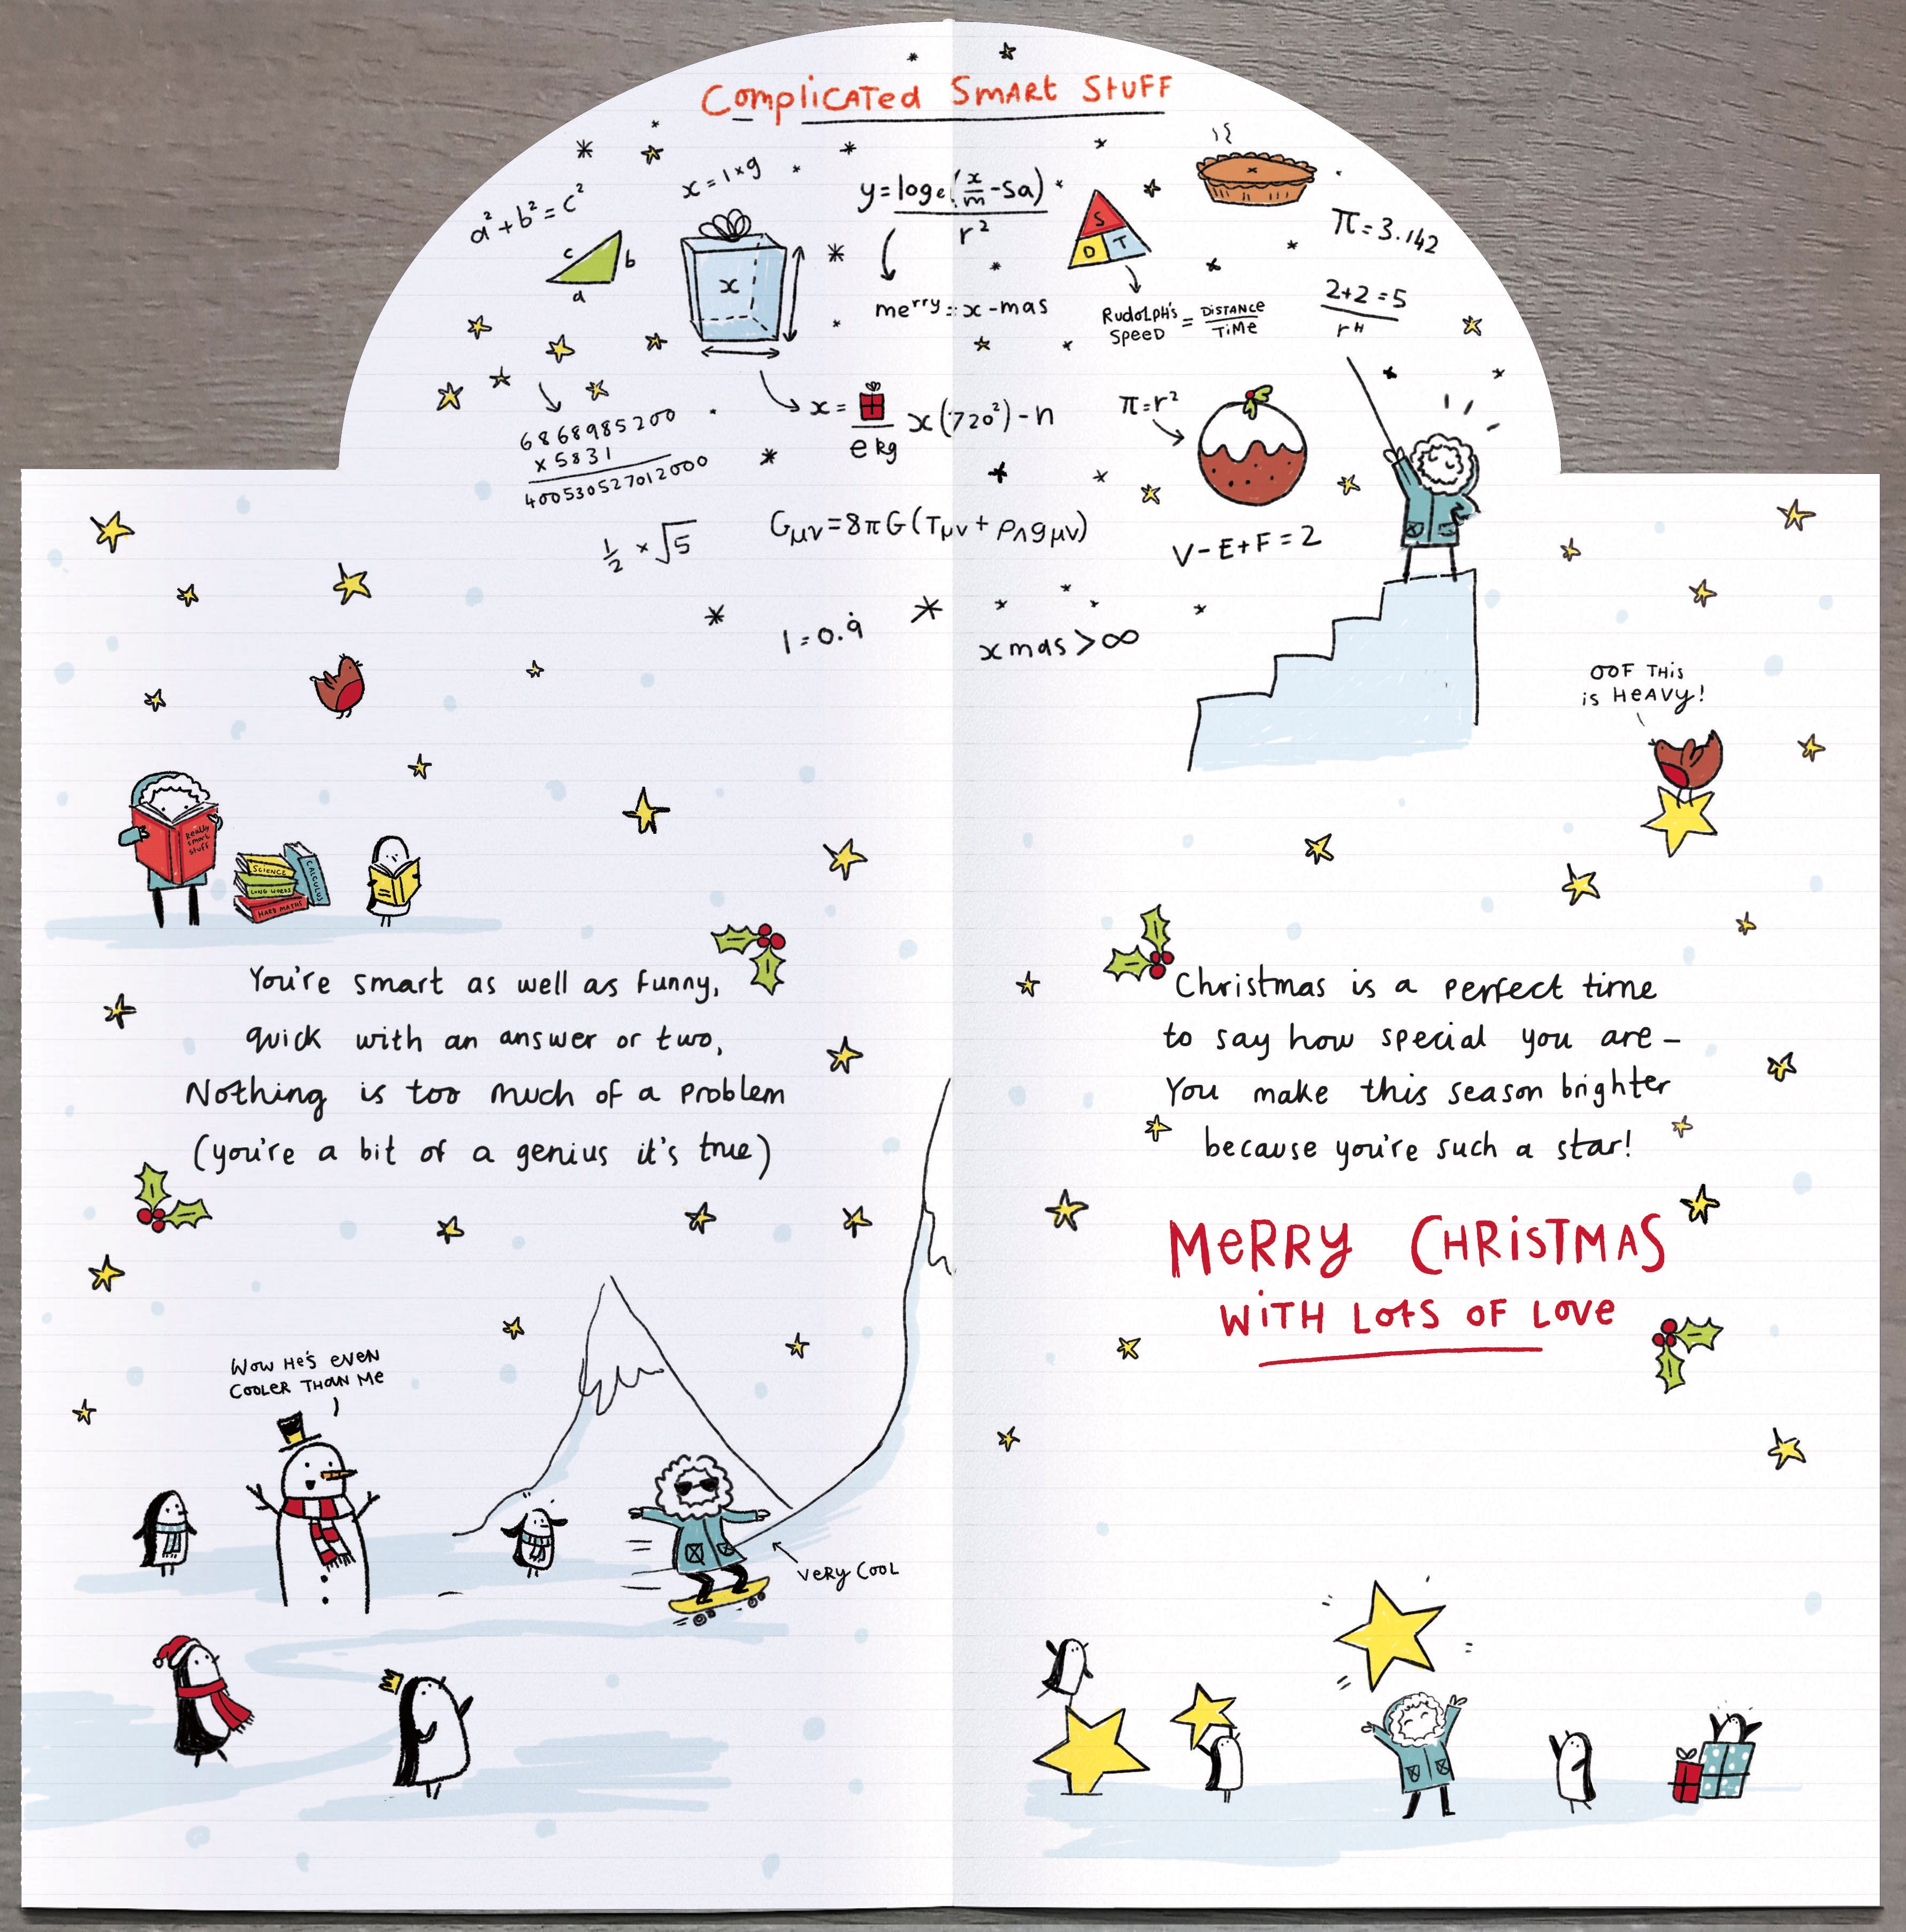 Complicated Smart Stuff
a² + b² = c²
c
b
a
x = 1 × g
x
y = logₑ(x/m - sa)
r²
meʳʳʸ = x - mas
S
D T
Rudolph's Speed = Distance / Time
π = 3.142
2 + 2 = 5
rᴴ
6868985200
× 5831
400530527012000
x =
e kg
x(720²) - n
π = r²
½ × √5
Gμν = 8πG(Tμν + ρΛgμν)
V - E + F = 2
1 = 0.9̇
xmas > ∞
OOF THIS
is HEAVY!
Really
smart
stuff
SCIENCE
LONG WORDS
HARD MATHS
CALCULUS
You're smart as well as funny,
quick with an answer or two,
Nothing is too much of a problem
(you're a bit of a genius it's true)
Wow He's even
cooler than me
very cool
Christmas is a perfect time
to say how special you are –
You make this season brighter
because you're such a star!
Merry Christmas
with lots of love